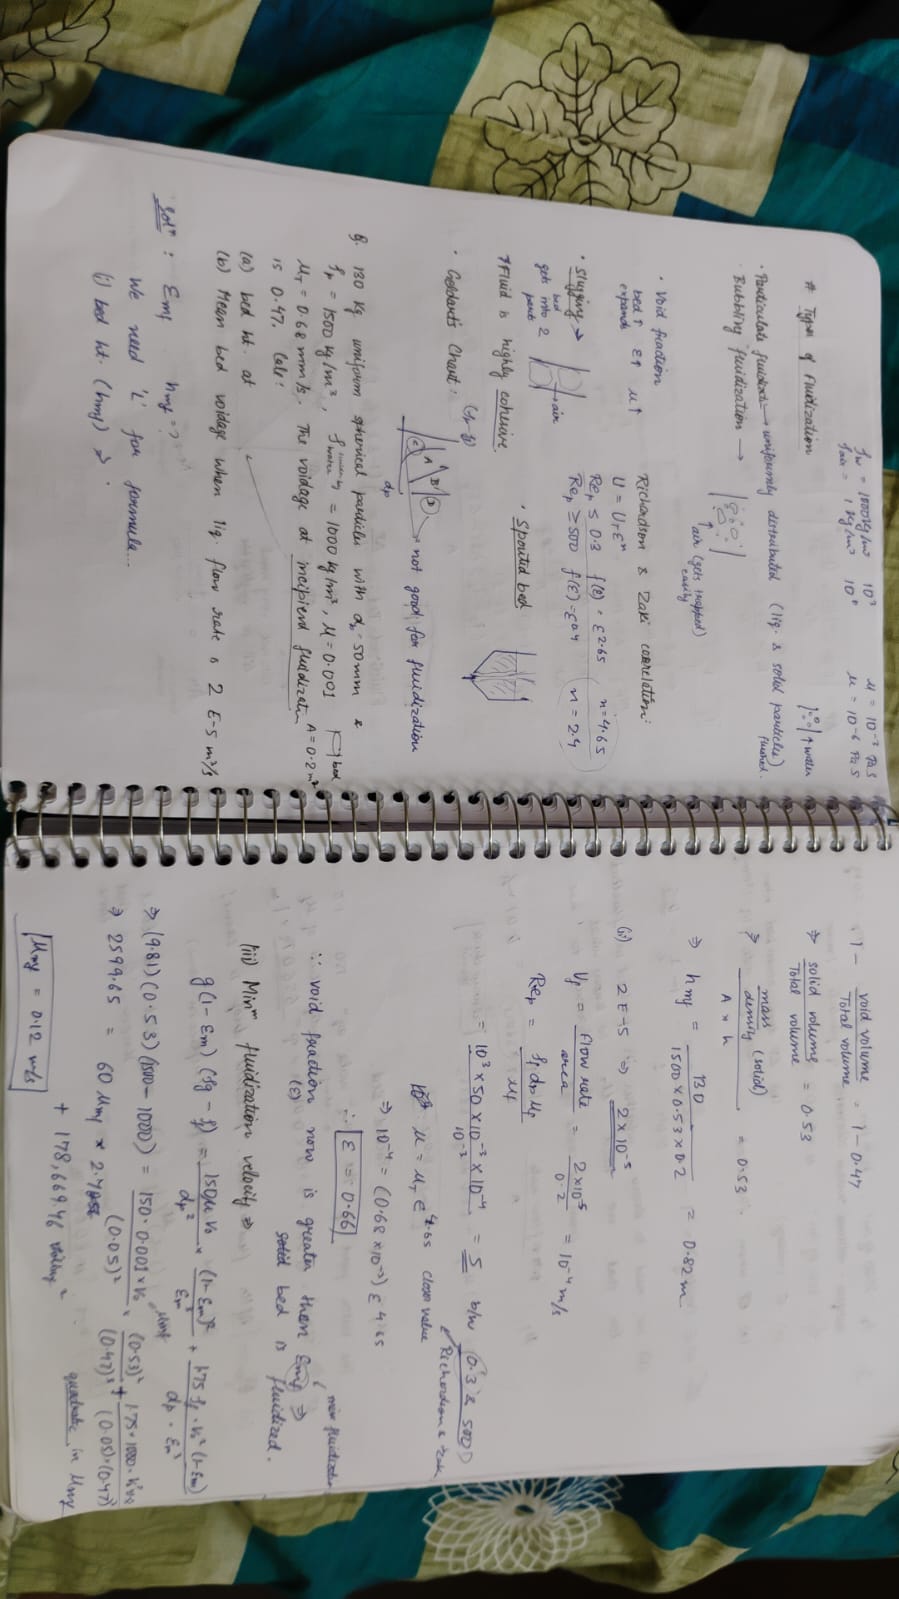 ρw = 1000 kg/m³ 10³ μ = 10⁻³ Pa S
ρair = 1 kg/m³ 10⁰ μ = 10⁻⁶ Pa S
# Types of Fluidization
↑ water
• Particulate fluidizatn → uniformly distributed (liq. & solid particles)
fluidized.
Bubbling fluidization →
air (gets trapped)
easily
• Void fraction
bed ↑ ε↑ u↑
expands
Richardson & Zaki correlation:
U = U_T εⁿ
Rep ≤ 0.3 f(ε) = ε^2.65 n = 4.65
Rep ≥ 500 f(ε) = ε^0.4 n = 2.4
• Slugging →
bed
gets into 2
parts
air
→ Fluid is highly cohesive.
• Spouted bed
• Geldart's Chart:
(ρp-ρf)
C A B D
not good for fluidization
dp
Q. 130 Kg uniform spherical particles with dp 50mm &
ρp = 1500 kg/m³, ρ water = 1000 kg/m³, μ = 0.001
bed
A = 0.2 m²
μT = 0.68 mm/s. The voidage at incipiend fluidizatn
is 0.47. Calc:
(a) bed ht. at
(b) Mean bed voidage when liq. flow rate is 2 E-5 m³/s
Solⁿ : Emf hmf = ?
We need 'L' for formula...
(i) bed ht. (hmf) ⇒
1 - void volume / Total volume = 1 - 0.47
⇒ solid volume / Total volume = 0.53
⇒ mass / density (solid) / A × h = 0.53
⇒ hmf = 130 / 1500 × 0.53 × 0.2 = 0.82 m
(ii) 2 E-5 ⇒ 2 × 10⁻⁵
Vf = Flow rate / area = 2×10⁻⁵ / 0.2 = 10⁻⁴ m/s
Rep = ρf dp μf / μf
= 10³ × 50 × 10⁻³ × 10⁻⁴ / 10⁻³ = 5 b/w 0.3 & 500
Richardson & Zaki
μ = μT ε^4.65 closer value
⇒ 10⁻⁴ = (0.68 × 10⁻³) ε^4.65
∴ ε = 0.66
min fluidization
∵ void fraction now is greater than Emf ⇒
(ε) solid bed is fluidized.
(iii) Minᵐ fluidization velocity ⇒
g(1 - Em) (ρg - ρf) = 150μ V₀ / dp² × (1-Em)² / Em³ + 1.75 ρf · V₀² (1-Em) / dp · Em³
μmf
⇒ (9.81)(0.53)(1500 - 1000) = 150 · 0.001 × V₀ / (0.05)² × (0.53)² / (0.47)³ + 1.75 × 1000 · V₀² / (0.05)·(0.47)³
⇒ 2599.65 = 60 μmf × 2.7
+ 178,669.46 ²
quadratic in μmf
μmf = 0.12 m/s